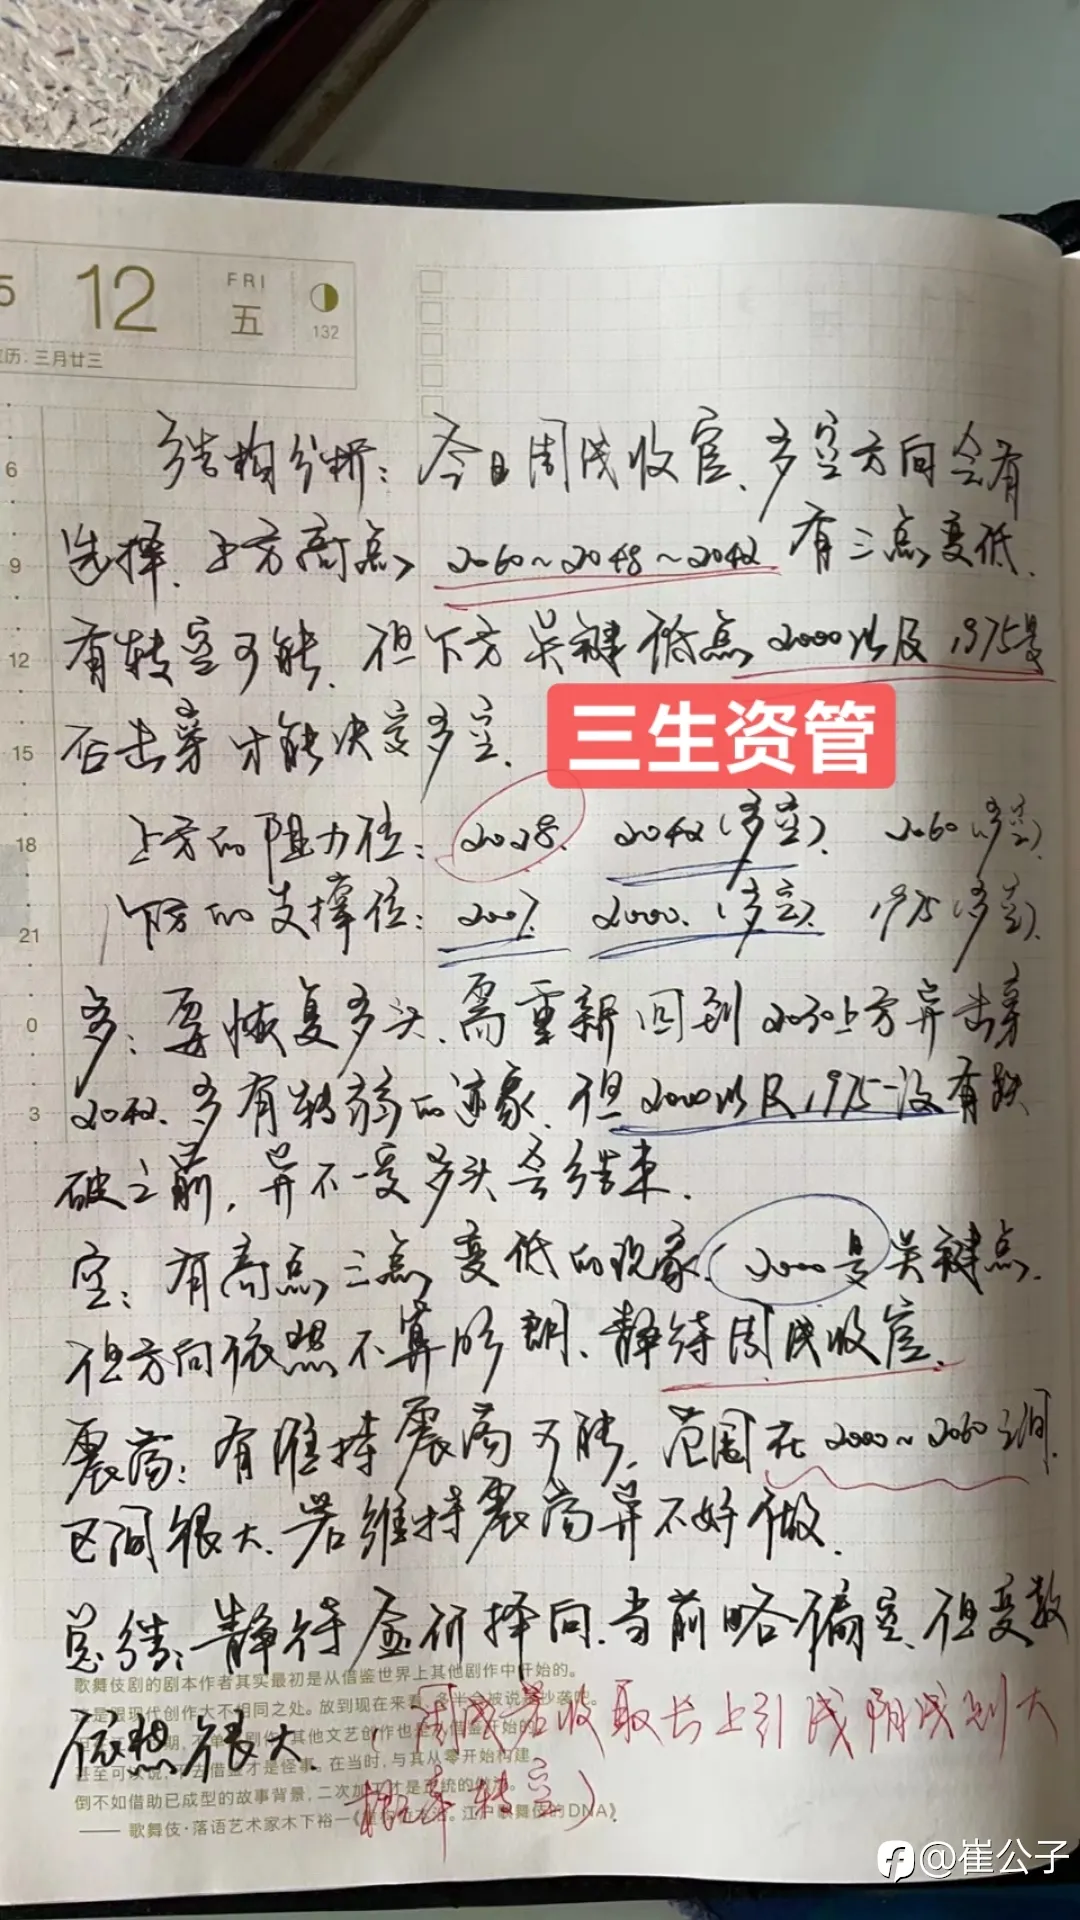 5 12 FRI 五 132
历: 三月廿三
结构分析: 今日周线收官、多空方向会有
6
选择、上方高点 2060~2048~2042 有三点变低、
9
有转空可能、但下方关键低点 2000以及1975是
12
否击穿才能决定多空、
三生资管
15
上方的阻力位: 2028、 2042(多空)、 2060(多空)、
18
下方的支撑位: 2007、 2000、(多空)、 1975(多空)、
21
多: 要恢复多头、需重新回到2030上方并击穿
0
2042、多有转弱的迹象、但2000以及1975没有跌
3
破之前, 并不一定多头会结束、
空: 有高点三点变低的现象、2000是关键点、
但方向依然不算明朗、静待周线收官、
震荡: 有维持震荡可能、范围在2000~2060之间、
区间很大、若维持震荡并不好做、
总结: 静待金价择向、当前略偏空、但变数
歌舞伎剧的剧本作者其实最初是从借鉴世界上其他剧作中开始的。
依然很大、(周线若收取长上引线阴线则大
甚至可以说, 不去借鉴才是怪事。在当时, 与其从零开始构建,
倒不如借助已成型的故事背景, 二次加工才是正统的做法。
概率转空)
—— 歌舞伎·落语艺术家木下裕一《 江户歌舞伎的DNA》
@崔公子